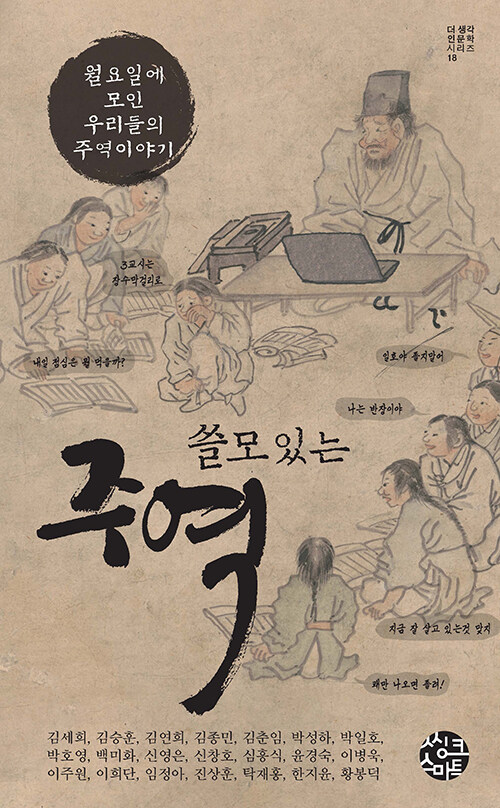 더 생 각
인 문 학
시 리 즈
18
월요일에
모인
우리들의
주역이야기
3교시는
장수막걸리로
내일 점심은 뭘 먹을까?
일호야 졸지말어
나는 반장이야
쓸모 있는
주역
지금 잘 살고 있는것 맞지
괘만 나오면 졸려!
김세희, 김승훈, 김연희, 김종민, 김춘임, 박성하, 박일호,
박호영, 백미화, 신영은, 신창호, 심흥식, 윤경숙, 이병욱,
이주원, 이희단, 임정아, 진상훈, 탁재홍, 한지윤, 황봉덕
씽크
스마트